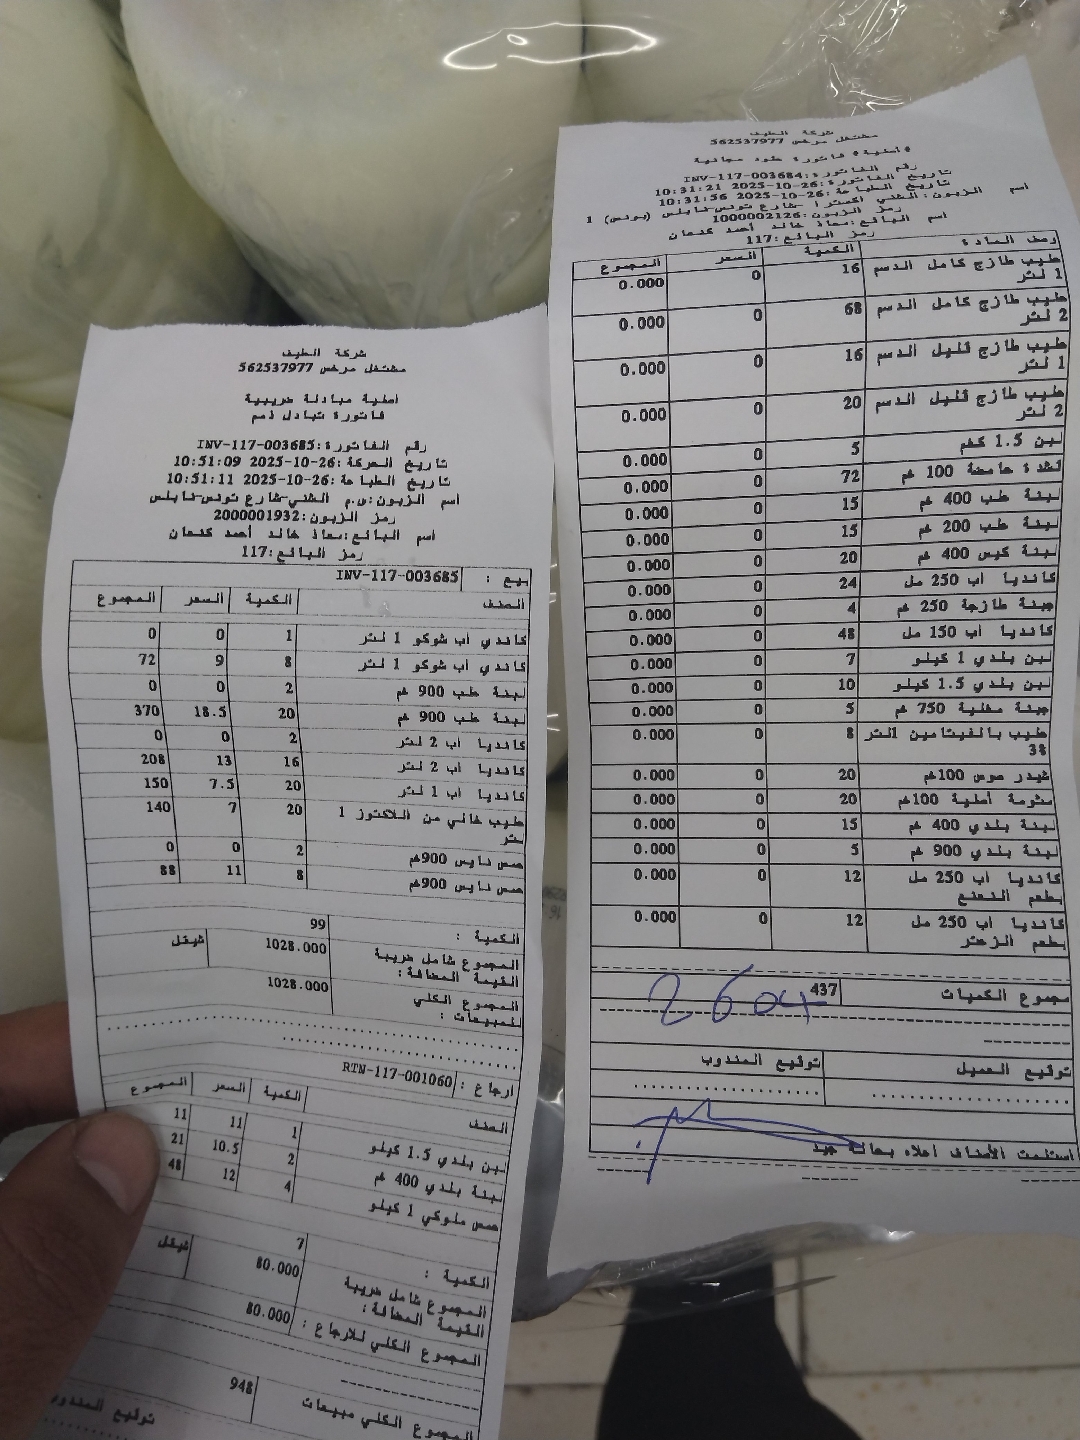 شركة الطيف
مشتغل مرخص 562537977
اصلية مبادلة ضريبية
فاتورة تبادل ذمم
رقم الفاتورة:INV-117-003685
تاريخ الحركة:26-10-2025 10:51:09
تاريخ الطباعة:26-10-2025 10:51:11
اسم الزبون:س.م الشني-شارع تونس-نابلس
رمز الزبون:2000001932
اسم البائع:معاذ خالد أحمد كنعان
رمز البائع:117
بيع : INV-117-003685
الصنف الكمية السعر المجموع
كاندي أب شوكو 1 لتر 1 0 0
كاندي أب شوكو 1 لتر 8 9 72
لبنة طب 900 غم 2 0 0
لبنة طب 900 غم 20 18.5 370
كانديا أب 2 لتر 2 0 0
كانديا أب 2 لتر 16 13 208
كانديا أب 1 لتر 20 7.5 150
حليب خالي من اللاكتوز 1 لتر 20 7 140
حمص نايس 900غم 2 0 0
حمص نايس 900غم 8 11 88
الكمية : 99
المجموع شامل ضريبة القيمة المضافة: 1028.000 شيقل
المجموع الكلي للمبيعات : 1028.000
ارجاع : RTN-117-001060
الصنف الكمية السعر المجموع
لبن بلدي 1.5 كيلو 1 11 11
لبنة بلدي 400 غم 2 10.5 21
حمص ملوكي 1 كيلو 4 12 48
الكمية : 7
المجموع شامل ضريبة القيمة المضافة: 80.000 شيقل
المجموع الكلي للارجاع : 80.000
المجموع الكلي مبيعات 948
توقيع المندوب
شركة الطيف
مشتغل مرخص 562537977
*أصلية* فاتورة طرد مجانية
رقم الفاتورة:INV-117-003684
تاريخ الفاتورة:26-10-2025 10:31:21
تاريخ الطباعة:26-10-2025 10:31:56
اسم الزبون:الشني اكسترا -شارع تونس-نابلس (بونص) 1
رمز الزبون:1000002126
اسم البائع:معاذ خالد أحمد كنعان
رمز البائع:117
وصف المادة الكمية السعر المجموع
حليب طازج كامل الدسم 1 لتر 16 0 0.000
حليب طازج كامل الدسم 2 لتر 68 0 0.000
حليب طازج قليل الدسم 1 لتر 16 0 0.000
حليب طازج قليل الدسم 2 لتر 20 0 0.000
لبن 1.5 كغم 5 0 0.000
قشدة حامضة 100 غم 72 0 0.000
لبنة طب 400 غم 15 0 0.000
لبنة طب 200 غم 15 0 0.000
لبنة كيس 400 غم 20 0 0.000
كانديا أب 250 مل 24 0 0.000
جبنة طازجة 250 غم 4 0 0.000
كانديا أب 150 مل 48 0 0.000
لبن بلدي 1 كيلو 7 0 0.000
لبن بلدي 1.5 كيلو 10 0 0.000
جبنة مغلية 750 غم 5 0 0.000
حليب بالفيتامين 1لتر 3% 8 0 0.000
شيدر صوص 100غم 20 0 0.000
مثومة أصلية 100غم 20 0 0.000
لبنة بلدي 400 غم 15 0 0.000
لبنة بلدي 900 غم 5 0 0.000
كانديا أب 250 مل بطعم النعنع 12 0 0.000
كانديا أب 250 مل بطعم الزعتر 12 0 0.000
مجموع الكميات 437
2604
توقيع العميل توقيع المندوب
استلمت الأصناف أعلاه بحالة جيد